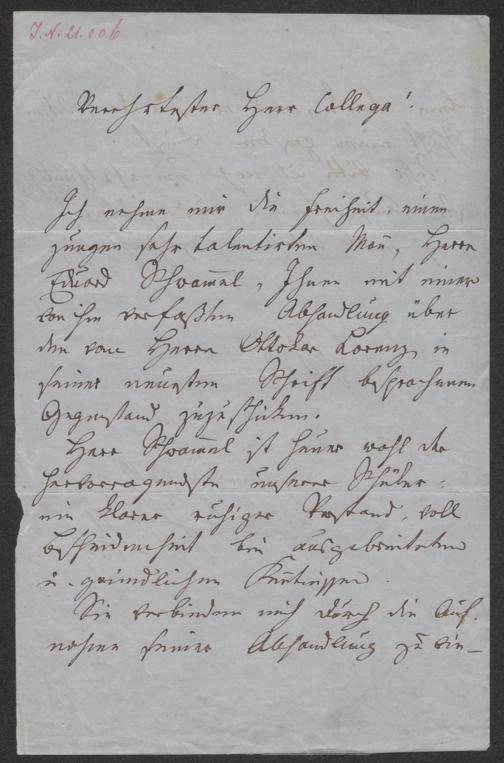 I.N. 21.006
Verehrtester Herr Collega!
Ich nehme mir die Freiheit einen
jungen sehr talentirten Mañ, Herrn
Eduard Schwam̄el, Ihnen mit einer
von ihm verfaßten Abhandlung über
den von Herrn Ottokar Lorenz in
seiner neuesten Schrift besprochenen
Gegenstand zuzuschicken.
Herr Schwam̄el ist heuer wohl der
hervorragendste unserer Schüler:
ein klarer ruhiger Verstand, voll
Bescheidenheit bei ausgebreiteten
u. gründlichen Keñtnissen.
Sie verbinden mich durch die Auf-
nahme seiner Abhandlung zu ein-